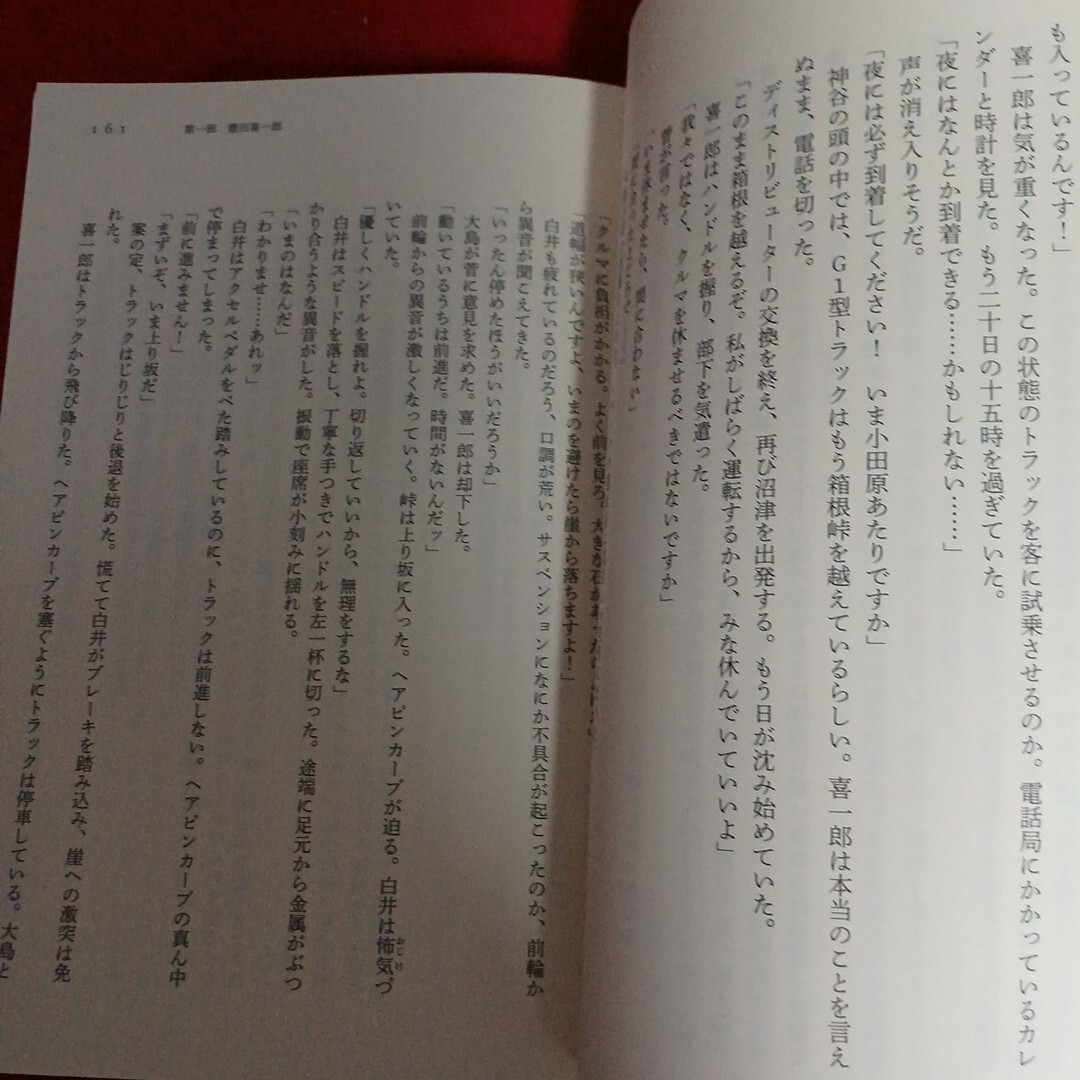 も入っているんです！」
喜一郎は気が重くなった。この状態のトラックを客に試乗させるのか。電話局にかかっているカレ
ンダーと時計を見た。もう二十日の十五時を過ぎていた。
「夜にはなんとか到着できる……かもしれない……」
声が消え入りそうだ。
「夜には必ず到着してください！　いま小田原あたりですか」
神谷の頭の中では、G1型トラックはもう箱根峠を越えているらしい。喜一郎は本当のことを言え
ぬまま、電話を切った。
ディストリビューターの交換を終え、再び沼津を出発する。もう日が沈み始めていた。
「このまま箱根を越えるぞ。私がしばらく運転するから、みな休んでいていいよ」
喜一郎はハンドルを握り、部下を気遣った。
「我々ではなく、クルマを休ませるべきではないですか」
菅が言った。
「クルマに負担がかかる。よく前を見ろ。大きな石があったら
「道幅が狭いんですよ、いまのを避けたら崖から落ちますよ！」
白井も疲れているのだろう、口調が荒い。サスペンションになにか不具合が起こったのか、前輪か
ら異音が聞こえてきた。
「いったん停めたほうがいいだろうか」
大島が菅に意見を求めた。喜一郎は却下した。
「動いているうちは前進だ。時間がないんだッ」
前輪からの異音が激しくなっていく。峠は上り坂に入った。ヘアピンカーブが迫る。白井は怖気づ
おじけ
いていた。
「優しくハンドルを握れよ。切り返していいから、無理をするな」
白井はスピードを落とし、丁寧な手つきでハンドルを左一杯に切った。途端に足元から金属がぶつ
かり合うような異音がした。振動で座席が小刻みに揺れる。
「いまのはなんだ」
「わかりませ……あれッ」
白井はアクセルペダルをべた踏みしているのに、トラックは前進しない。ヘアピンカーブの真ん中
で停まってしまった。
「前に進みません！」
「まずいぞ、いま上り坂だ」
案の定、トラックはじりじりと後退を始めた。慌てて白井がブレーキを踏み込み、崖への激突は免
れた。
喜一郎はトラックから飛び降りた。ヘアピンカーブを塞ぐようにトラックは停車している。大島と
161　第一部　豊田喜一郎